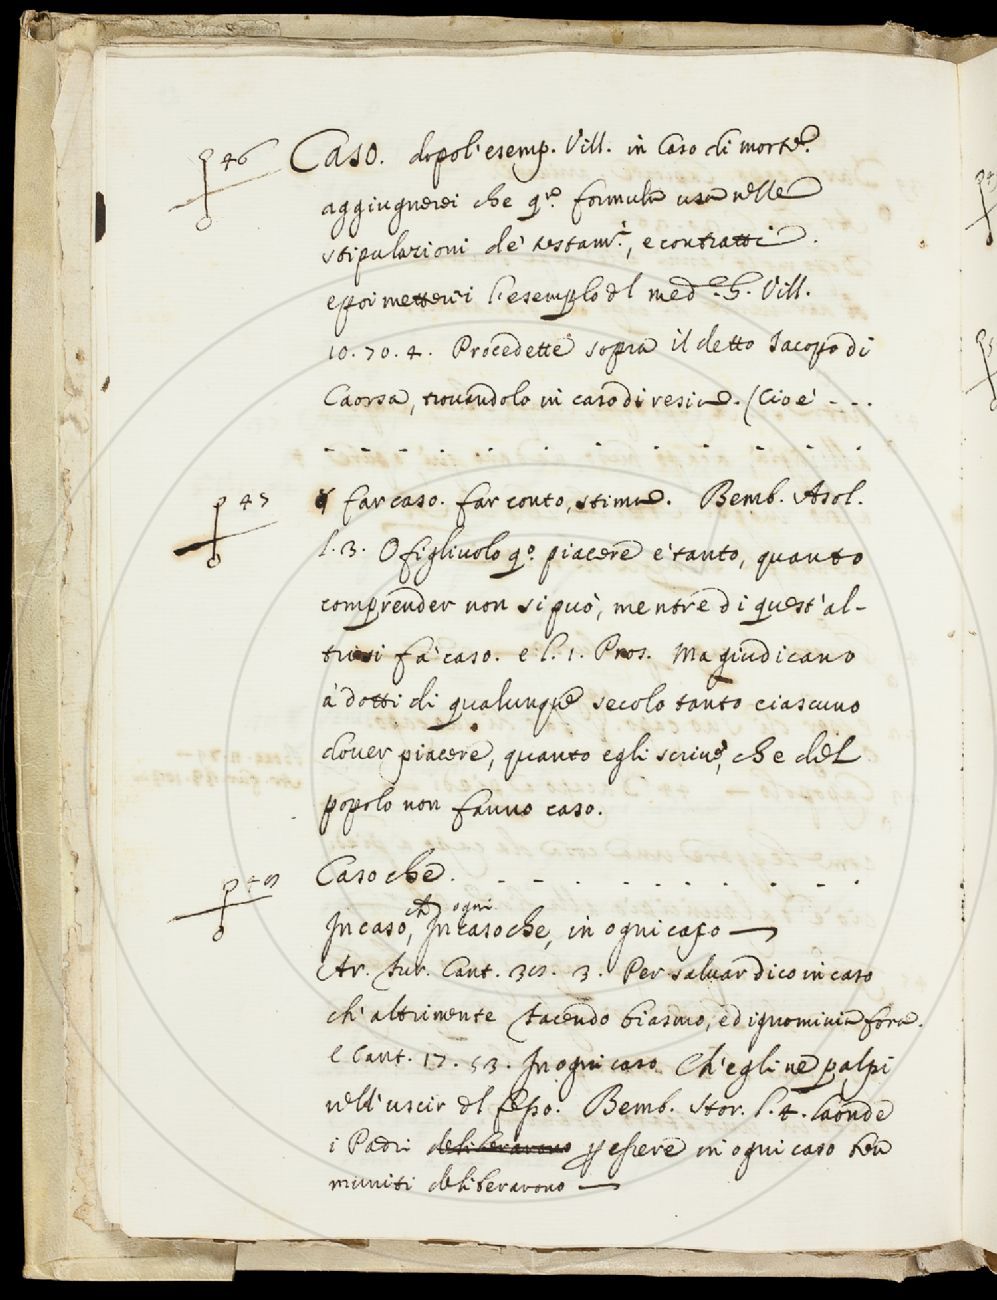 46 Caso. dopo l'esemp. Vill. in Caso di morte.
aggiugnerei che q.ta formula usa nelle
stipulazioni de' testam.ti, e contratti.
e poi metterei l'esemplo del med.o G. Vill.
10. 70. 4. Procedette sopra il detto Jacopo di
Caorsa, trovandolo in caso di resia. (Cioè - - -
- - - - - - - - - - - - -
47 far caso. far conto, stima. Bemb. Asol.
l. 3. O figliuolo q.o piacere è tanto, quanto
comprender non si può, mentre di quest'al-
trui si fà caso. e l. 1. Pros. Ma giudicano
à dotti di qualunque secolo tanto ciascuno
dover piacere, quanto egli scrive, che del
popolo non fanno caso.
48 Caso che. - - - - - - - - - - -
In caso, ch In ogni caso che, in ogni caso —
Ar. Fur. Cant. 38. 3. Per salvar dico in caso
ch'altrimente facendo biasmo, ed ignominia fora.
e Cant. 17. 53. In ogni caso Ch'egli ne palpi
nell'uscir del fesso. Bemb. Stor. l. 4. laonde
i Padri deliberarono p essere in ogni caso ben
muniti deliberarono —